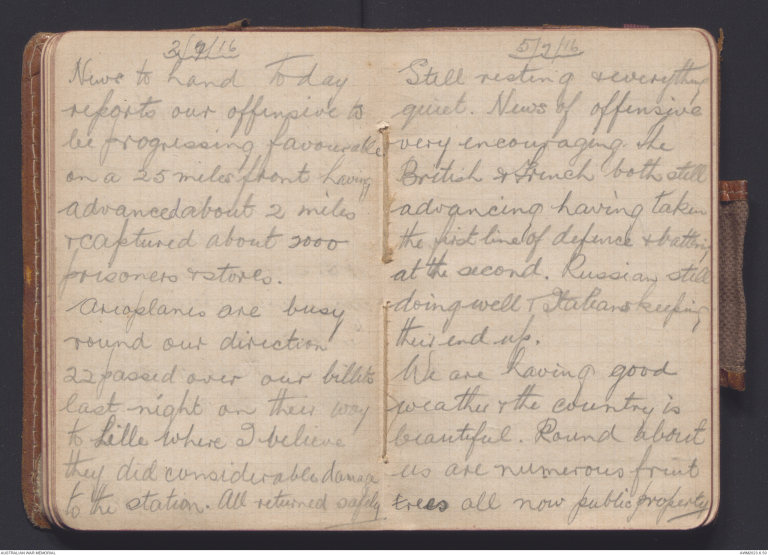 3/7/16
News to hand Today
reports our offensive to
be progressing favourable
on a 25 miles front having
advanced about 2 miles
& captured about 2000
prisoners & stores.
Areoplanes are busy
round our direction
22 passed over our billets
last night on their way
to Lille where I believe
they did considerable damage
to the station. All returned safely
5/7/16
Still resting & everything
quiet. News of offensive
very encouraging. The
British & French both still
advancing having taken
the first line of defence & battering
at the second. Russians still
doing well & Italians keeping
their end up.
We are having good
weather & the country is
beautiful. Round about
us are numerous fruit
trees all now public property
AUSTRALIAN WAR MEMORIAL